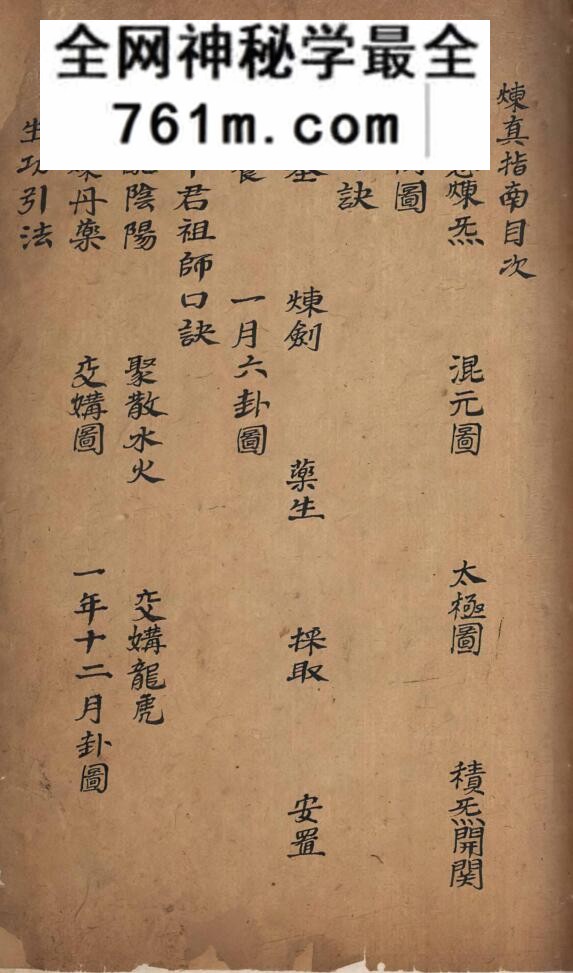 全网神秘学最全
761m.com
煉真指南目次
煉炁　混元圖　太極圖　積炁開関
圖
訣
煉劍　藥生　採取　安置
一月六卦圖
君祖師口訣
陰陽　聚散水火　交媾龍虎
丹藥　交媾圖　一年十二月卦圖
生功引法